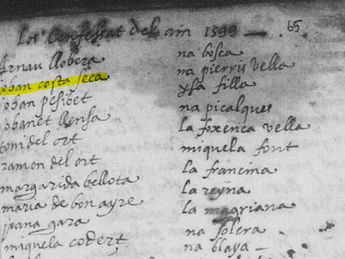 Los Confessat del ain 1599 65
Arnau llobera
johan costa seca
johan pesibet
johanet llensa
toni del ort
ramon del ort
margarida bellota
maria de bon ayre
joana gara
miquela codert
na bosca
na pierris vella
ysa filla
na picalques
la foxenca vella
miquela font
la francina
la reyna
la magriana
na solera
na blaya